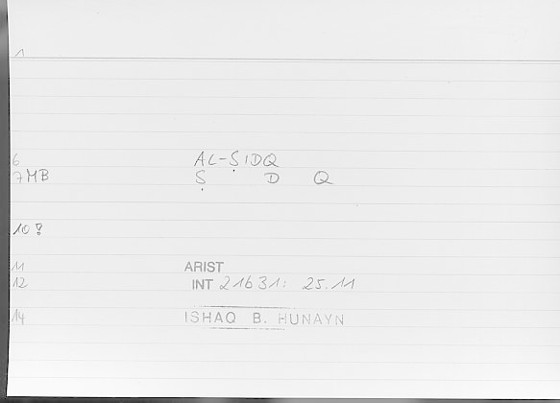 1
6 AL-ṢIDQ
7 MB Ṣ D Q
10?
11 ARIST
12 INT 21631: 25.11
14 ISHAQ B. HUNAYN